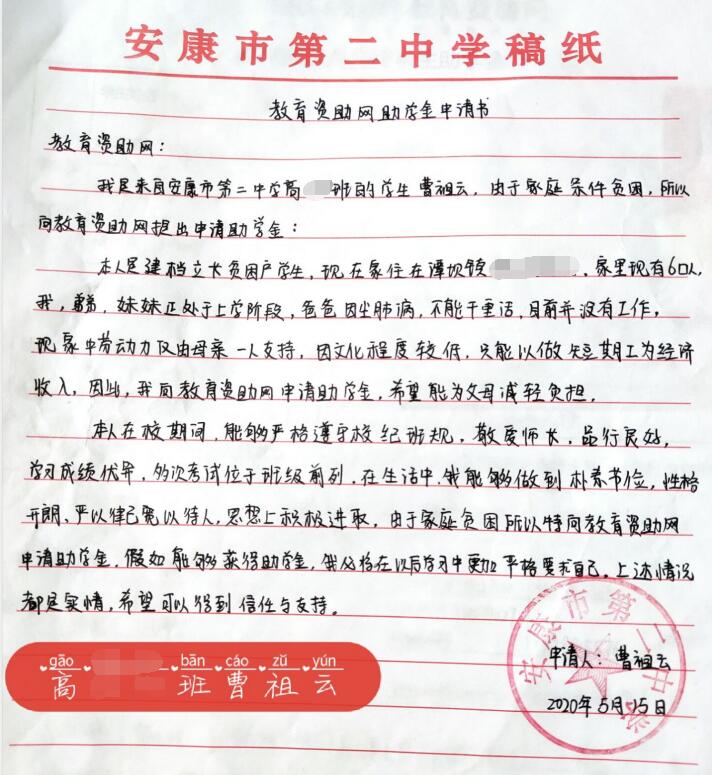 安康市第二中学稿纸
教育资助网助学金申请书
教育资助网：
我是来自安康市第二中学高 班的学生曹祖云，由于家庭条件贫困，所以
向教育资助网提出申请助学金：
本人是建档立卡贫困户学生，现在家住在谭坝镇 ，家里现有6口人，
我，弟弟，妹妹正处于上学阶段，爸爸因尘肺病，不能干重活，目前并没有工作，
现家中劳动力仅由母亲一人支持，因文化程度较低，只能以做短期工为经济
收入，因此，我向教育资助网申请助学金，希望能为父母减轻负担。
本人在校期间，能够严格遵守校纪班规，敬爱师长，品行良好，
学习成绩优异，多次考试位于班级前列，在生活中，我能够做到朴素节俭，性格
开朗、严以律己宽以待人，思想上积极进取，由于家庭贫困所以特向教育资助网
申请助学金，假如能够获得助学金，我必将在以后学习中更加严格要求自己，上述情况
都是实情，希望可以得到信任与支持。
申请人：曹祖云
2020年5月15日
安康市第二中学
gāo bān cáo zǔ yún
高 班曹祖云